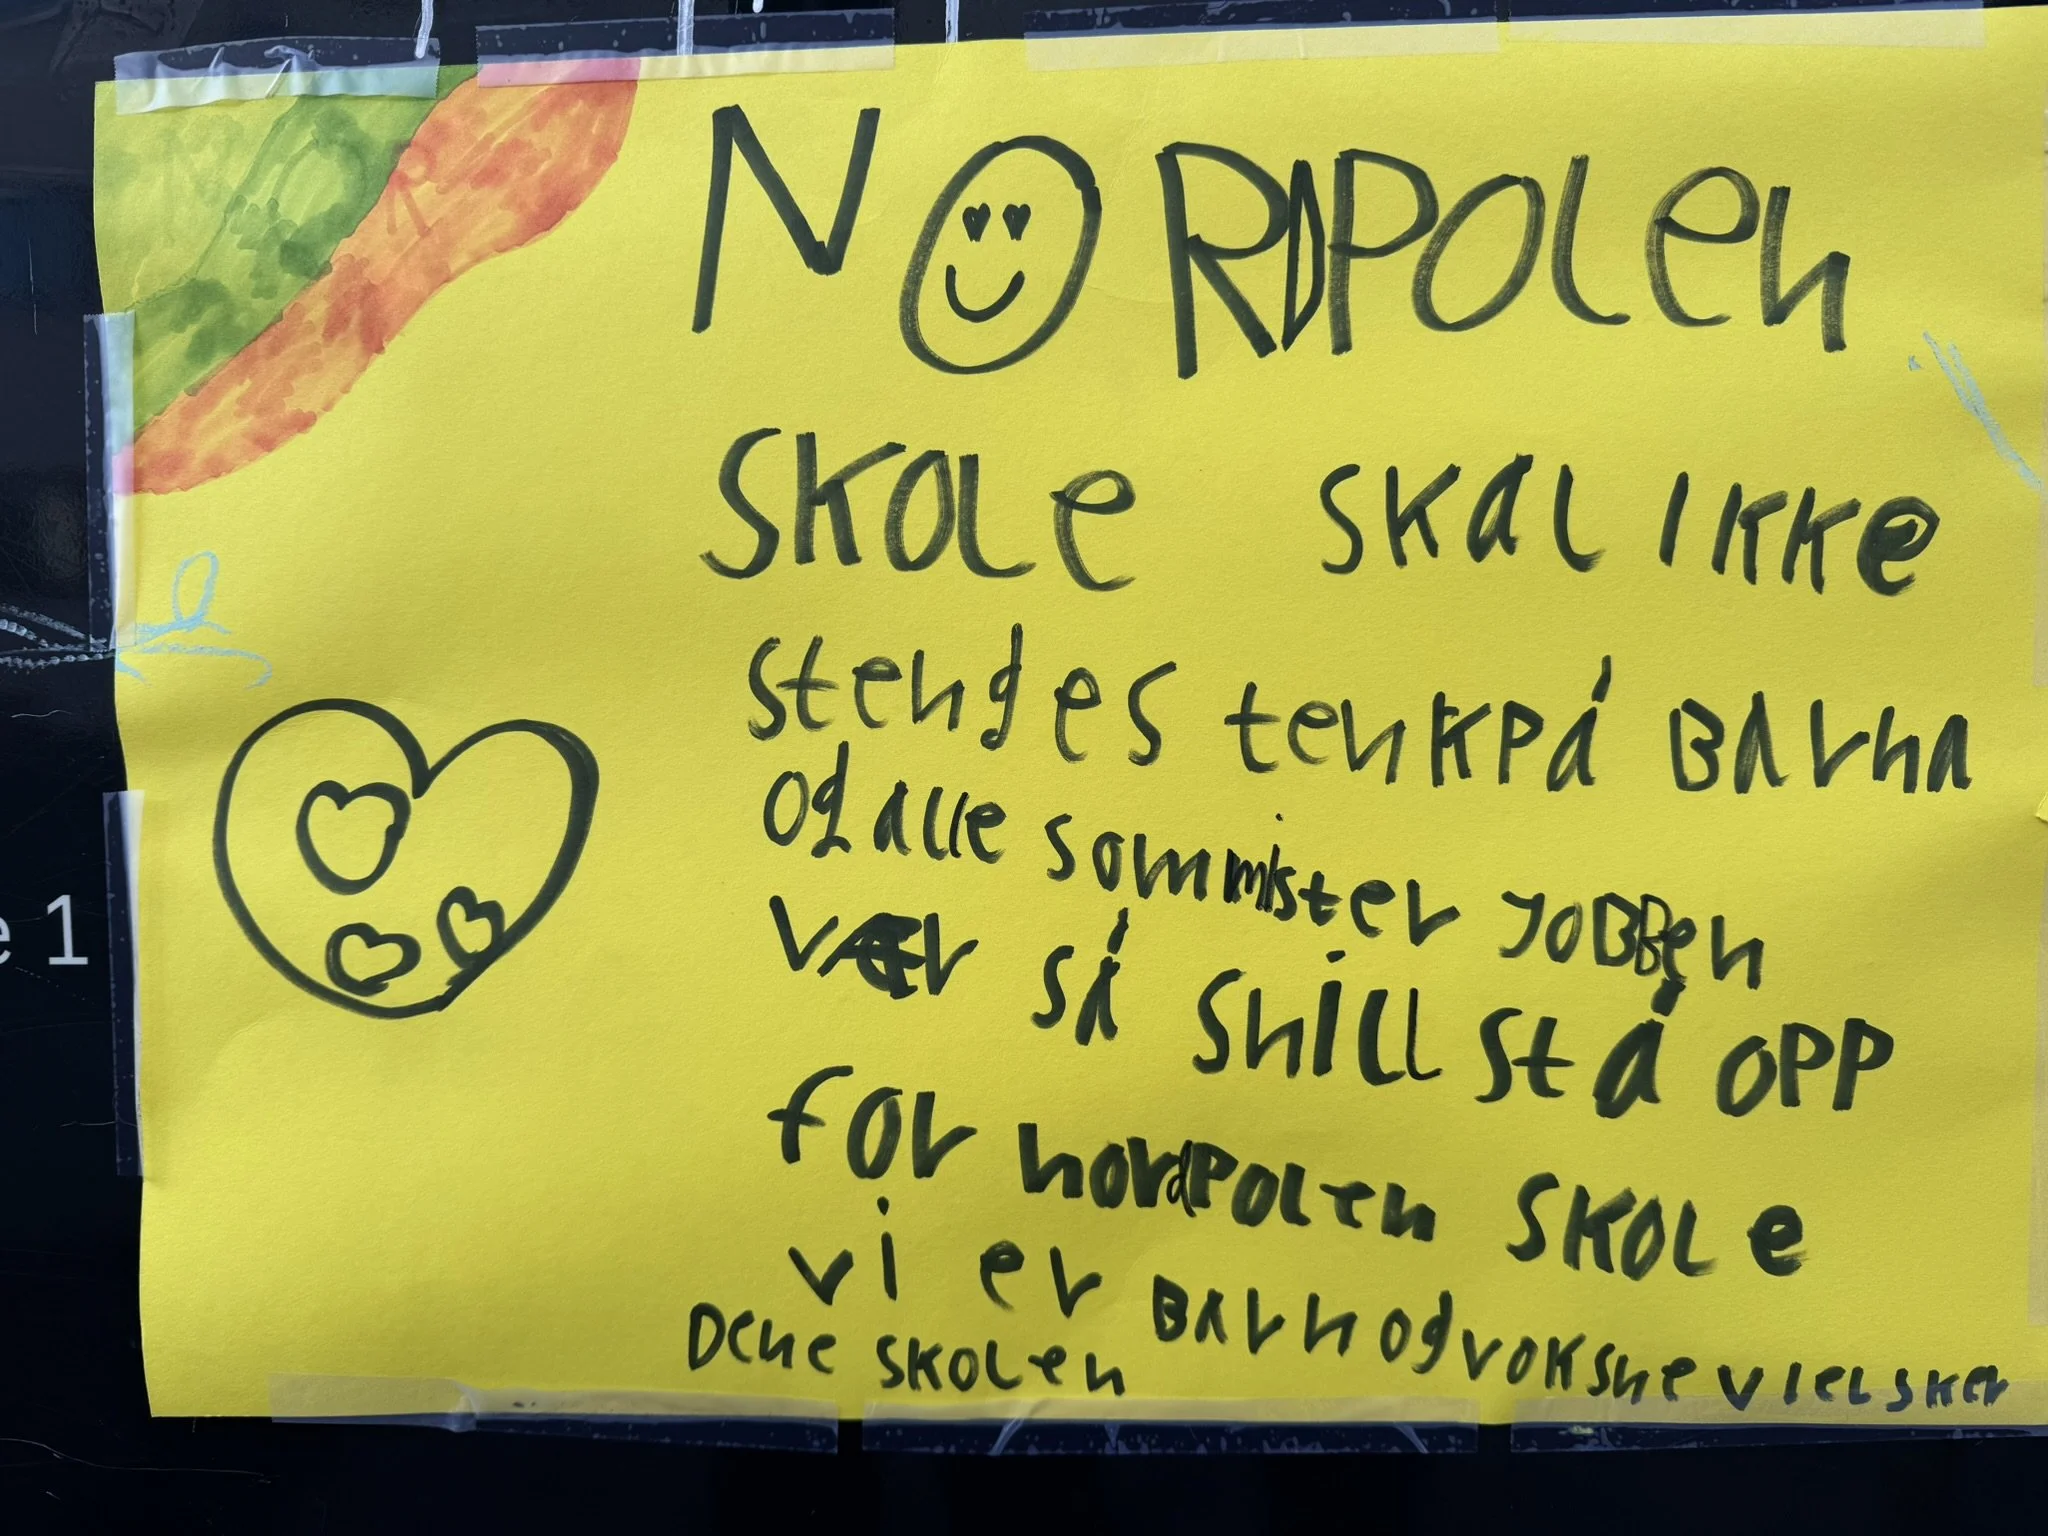 NORDPOLen
SKOLe SKAL IKKe
stenges tenKPå BArnA
Og Alle som mister JOBBen
vær så snill stå OPP
for nordPOLen SKOLe
vi er BArn og voKsne vi eLsKer
Dene SKOLen
e 1